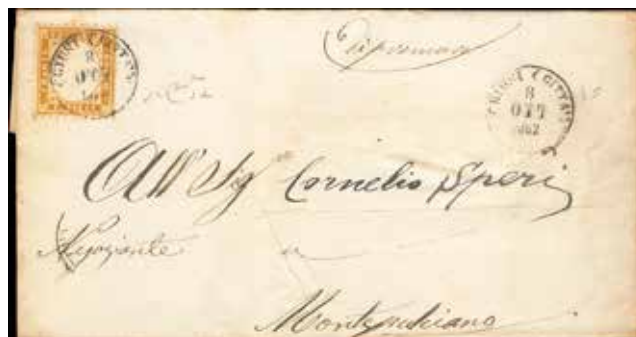 CHIUSI (CITTA')
8
OTT
CHIUSI (CITTA')
8
OTT
862
All Sig Cornelio Speri
Negoziante
a
Montepulciano